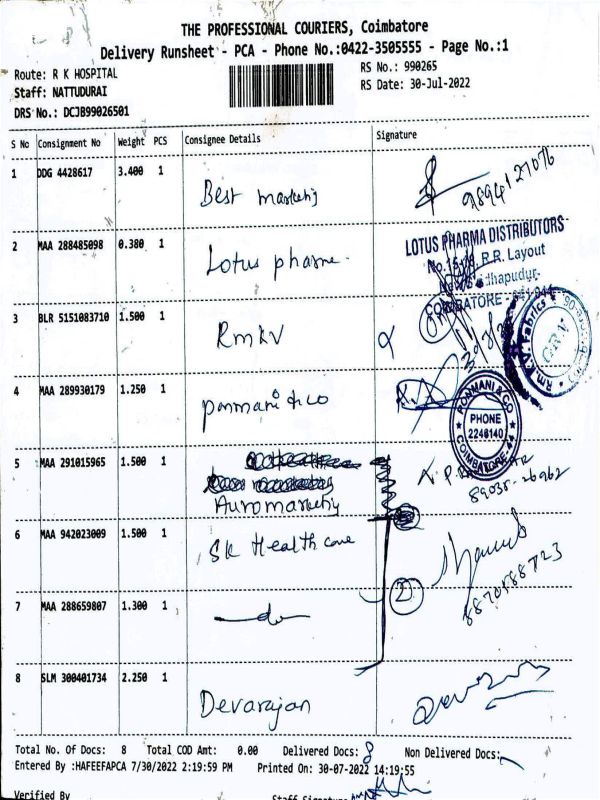 THE PROFESSIONAL COURIERS, Coimbatore
Delivery Runsheet - PCA - Phone No.:0422-3505555 - Page No.:1
Route: R K HOSPITAL
RS No.: 990265
Staff: NATTUDURAI
RS Date: 30-Jul-2022
DRS No.: DCJB99026501
S No Consignment No Weight PCS Consignee Details Signature
1 DDG 4428617 3.400 1 Best marketing 9894127076
2 MAA 288485098 0.380 1 Lotus pharma
LOTUS PHARMA DISTRIBUTORS
R.R. Layout
COIMBATORE
3 BLR 5151083710 1.500 1 RmKV
Rm.K.V. Fabrics
4 MAA 289930179 1.250 1 Ponmani & co
PONMANI & CO
PHONE
2246140
COIMBATORE
5 MAA 291015965 1.500 1
Auromarketing
89035-26962
6 MAA 942023009 1.500 1 SK Health care
8870488723
7 MAA 288659807 1.300 1 do 2
8 SLM 300401734 2.250 1 Devarajan
Total No. Of Docs: 8 Total COD Amt: 0.00 Delivered Docs: 8 Non Delivered Docs:
Entered By :HAFEEFAPCA 7/30/2022 2:19:59 PM Printed On: 30-07-2022 14:19:55
Verified By Staff Signature